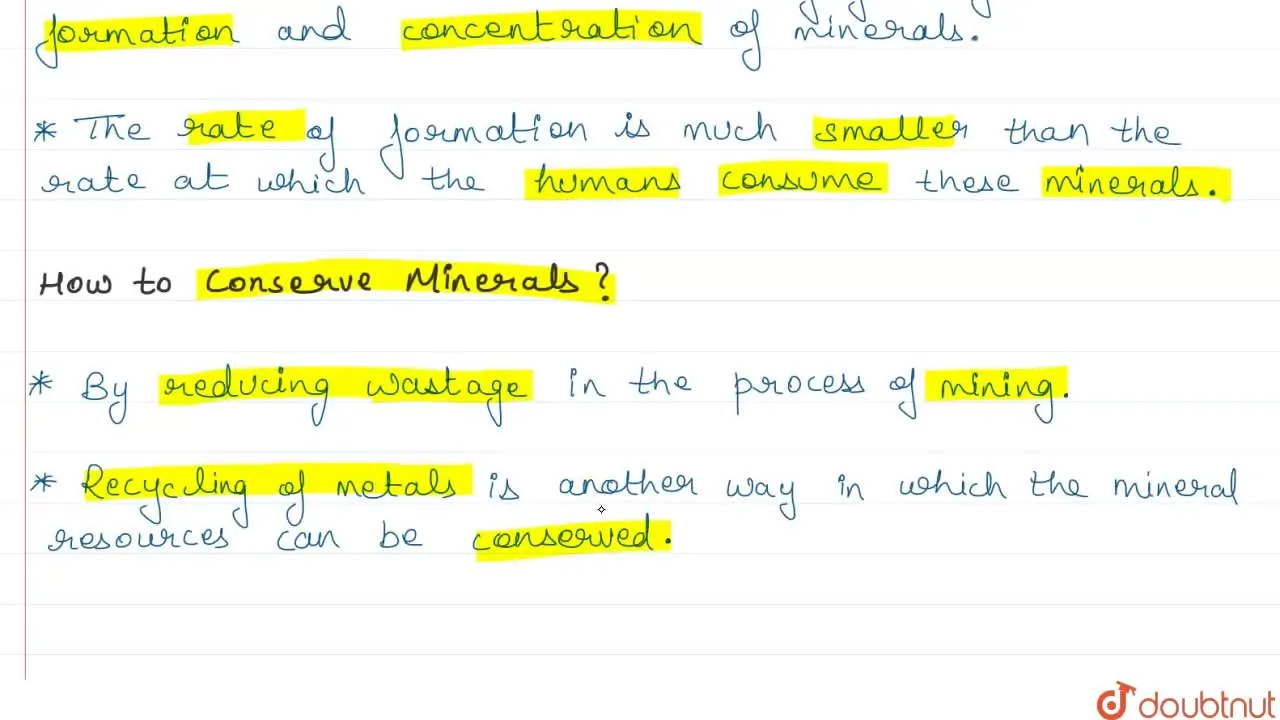 formation and concentration of minerals.
* The rate of formation is much smaller than the
rate at which the humans consume these minerals.
How to Conserve Minerals?
* By reducing wastage in the process of mining.
* Recycling of metals is another way in which the mineral
resources can be conserved.
doubtnut